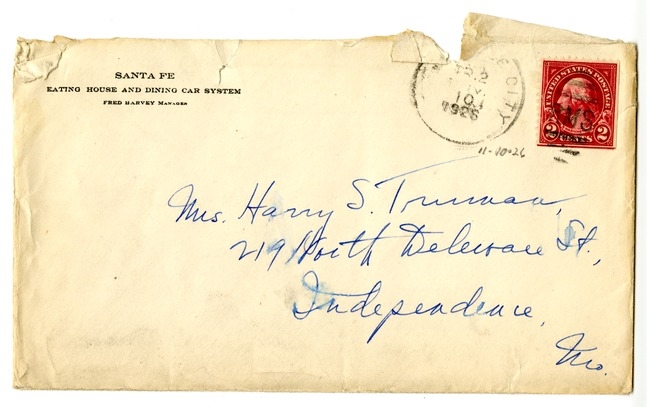 SANTA FE
EATING HOUSE AND DINING CAR SYSTEM
FRED HARVEY MANAGER
CITY
10
1926
UNITED STATES POSTAGE
2 CENTS 2
11-10-26
Mrs. Harry S. Truman,
219 North Deleware St.,
Independence,
Mo.